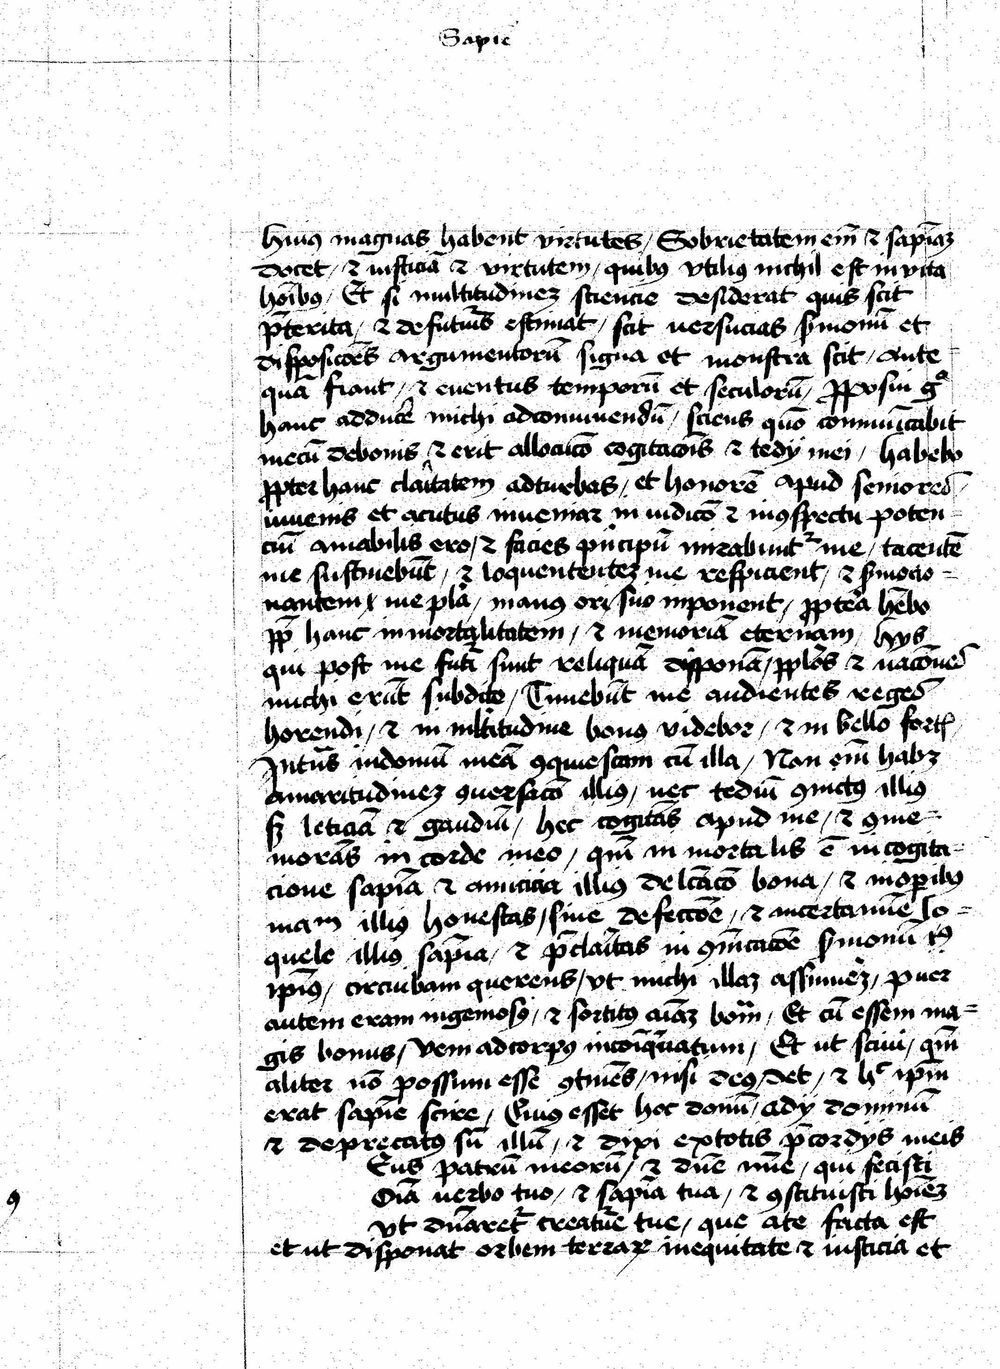 Sapie
huiꝰ magnas habent virtutes / Sobrietatem em̄ ⁊ sapiāꝫ
docet / ⁊ iusticiā ⁊ virtutem / quibꝰ vtiliꝰ nichil est in vita
hoībꝰ / Et si multitudineꝫ sciencie desiderat quis scit
p̄terita / ⁊ de futuris estimat / scit uersucias ẜmonū et
disposicōes argumentorū signa et monstra scit / ante =
quā fiant / ⁊ euentus temporū et seculorū / ꝓposui gͣ
hanc adducē michi ad conuiuendū / sciens quō commūicabit
mecū de bonis ⁊ erit allocucō cogitacōis ⁊ tedij mei / habebo
ꝓpter hanc claritatem ad turbas / et honorē apud seniores /
iuuenis et acutus inueniar in iudicō ⁊ in ꝯspectu poten =
ciū amabilis ero / ⁊ facies pͥncipū mirabunt᷑ me / tacentē
me sustinebūt / ⁊ loquententeꝫ me respicient / ⁊ ẜmocio =
nantem me pla / manꝰ ori suo inponent / ꝓpterā hēbo
ꝓp̄ hanc inmortalitatem / ⁊ memoriā eternam / hijs
qui post me futī sunt reliquā disponā / pplōs ⁊ nacōnes
michi erūt subdite / Timebūt me audientes reges
horendi / ⁊ in mltitudine bonꝰ videbor / ⁊ in bello fort̄ /
Intrās in domū meā ꝯquiescam cū illa / Non em̄ habꝫ
amaritudineꝫ ꝯuersacō illiꝰ / nec tediū ꝯuictꝰ illiꝰ
sꝫ leticiā ⁊ gaudiū / hec cogitās apud me / ⁊ ꝯme =
morās in corde meo / qm̄ in mortalis ē in cogita =
cione sapiā ⁊ in amicicia illiꝰ delc̄acō bona / ⁊ in oꝑibꝰ
manū illiꝰ honestas / sine defeccōe / ⁊ in certamīe lo =
quele illiꝰ sapīa / ⁊ p̄claritas in ꝯmīcacōe ẜmonū
ipīꝰ / circuibam querens / vt michi illaꝫ assumeꝫ / puer
autem eram ingeniosꝰ / ⁊ sortitꝰ aīaꝫ bonā / Et cū essem ma =
gis bonus / veni ad corpꝰ incoīquatum / Et ut sciui / qm̄
aliter nō possum esse ꝯtinēs / nisi deꝰ det / ⁊ hͨ ipm̄
erat sapīe scire / Cuius esset hoc donū / adij dominū
⁊ deprecatꝰ sū illū / ⁊ dixi ex totis p̄cordijs meis
Eus patrū meorū / ⁊ dn̄e mīe / qui fecisti
Oīa uerbo tuo / ⁊ sapīa tua / ⁊ ꝯstituisti hoīeꝫ
vt dn̄aret᷑ creatūe tue / que a te facta est
et ut disponat orbem terrarꝝ in equitate ⁊ iusticia et